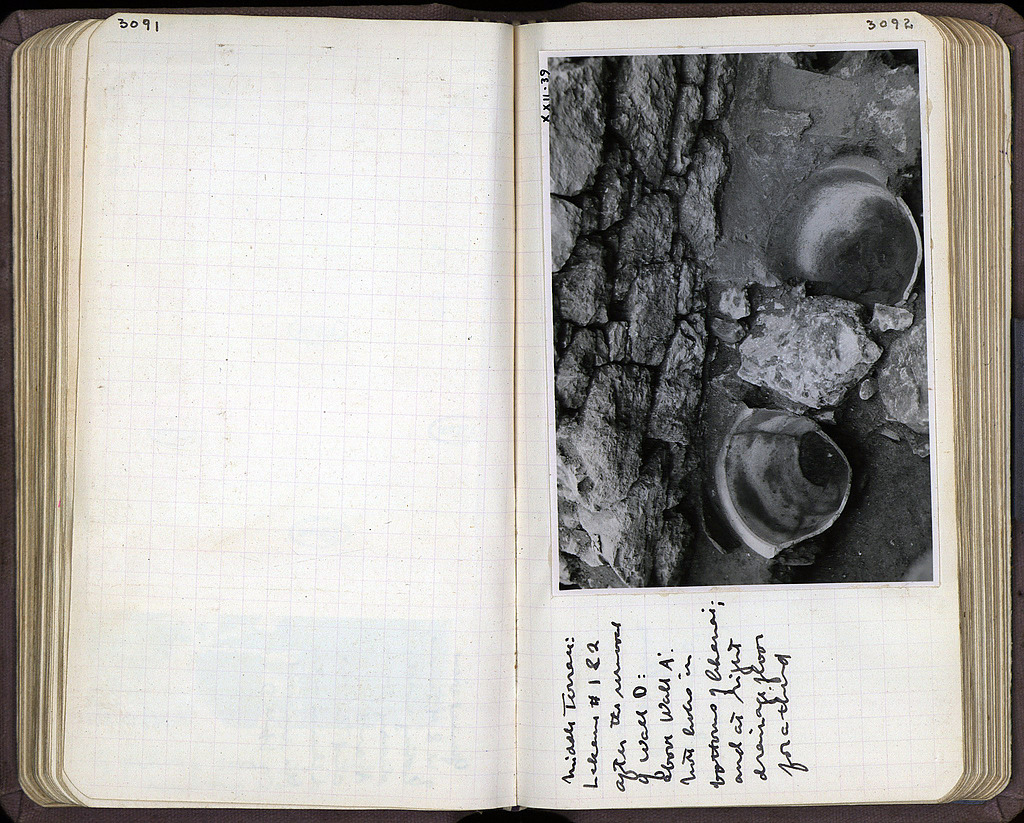 3091
3092
XXII-39
Middle Terrace:
Lekane # 1 & 2
after the removal
of wall D:
above Wall A'.
Note holes in
bottoms of lekanai;
and at right
drainage floor
for a third